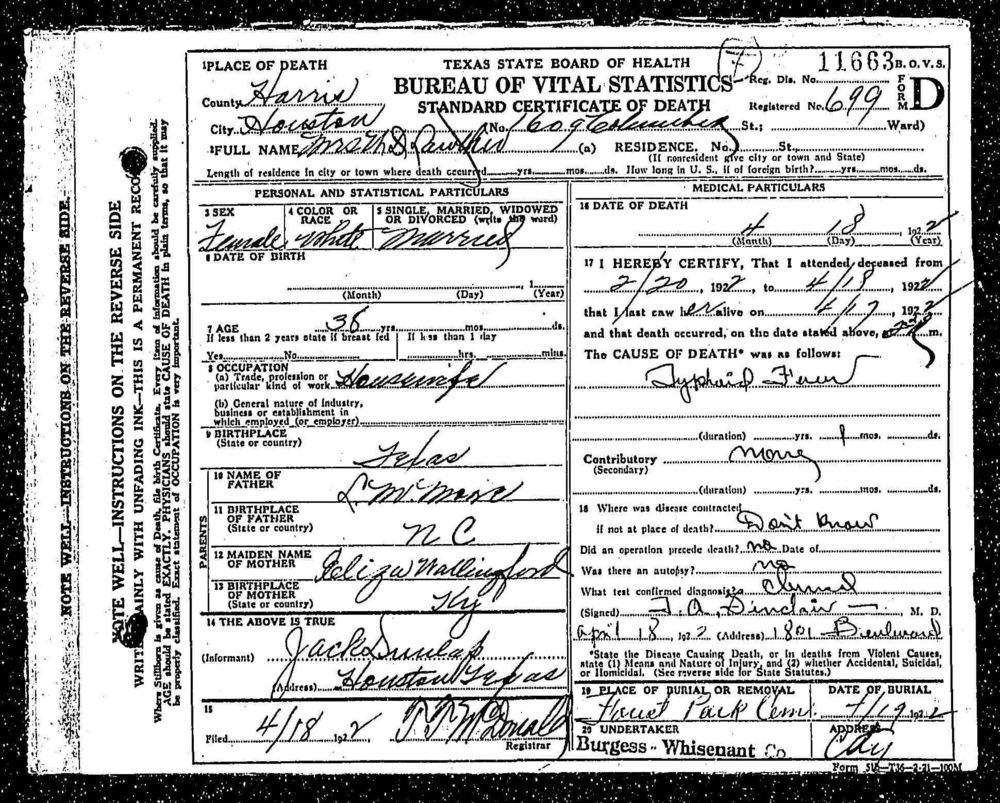 ¹PLACE OF DEATH
TEXAS STATE BOARD OF HEALTH
7
11663 B. O. V. S.
County Harris
BUREAU OF VITAL STATISTICS
Reg. Dis. No.
FORM D
City Houston
STANDARD CERTIFICATE OF DEATH
Registered No. 699
(No. 609 Columbia St.; Ward)
²FULL NAME Mrs
(a) RESIDENCE. No. St.,
(If nonresident give city or town and State)
Length of residence in city or town where death occurred yrs. mos. ds. How long in U. S., if of foreign birth? yrs. mos. ds.
PERSONAL AND STATISTICAL PARTICULARS
3 SEX
Female
4 COLOR OR RACE
White
5 SINGLE, MARRIED, WIDOWED OR DIVORCED (write the word)
Married
6 DATE OF BIRTH
, 1
(Month) (Day) (Year)
7 AGE 36 yrs. mos. ds.
If less than 2 years state if breast fed
If less than 1 day
Yes No hrs. mins.
8 OCCUPATION
(a) Trade, profession or
particular kind of work Housewife
(b) General nature of industry,
business or establishment in
which employed (or employer)
9 BIRTHPLACE
(State or country)
Texas
PARENTS
10 NAME OF FATHER
L. M.
11 BIRTHPLACE OF FATHER
(State or country)
N C
12 MAIDEN NAME OF MOTHER
Eliza Wallingford
13 BIRTHPLACE OF MOTHER
(State or country)
Ky
14 THE ABOVE IS TRUE
(Informant) Jack Dunlap
(Address) Houston Texas
15
Filed 4/18 1922 T. F. McDonald
Registrar
MEDICAL PARTICULARS
16 DATE OF DEATH
4 18 , 1922
(Month) (Day) (Year)
17 I HEREBY CERTIFY, That I attended deceased from
2/20 , 1922, to 4/18 , 1922
that I last saw her alive on 4/17 , 1922
and that death occurred, on the date stated above, m.
The CAUSE OF DEATH* was as follows:
Typhoid Fever
(duration) yrs. 1 mos. ds.
Contributory None
(Secondary)
(duration) yrs. mos. ds.
18 Where was disease contracted
if not at place of death? Don't know
Did an operation precede death? No Date of
Was there an autopsy? no
What test confirmed diagnosis? Clinical
(Signed) F. A. Sinclair M. D.
April 18, 1922 (Address) 1801 Boulevard
*State the Disease Causing Death, or in deaths from Violent Causes,
state (1) Means and Nature of Injury, and (2) whether Accidental, Suicidal,
or Homicidal. (See reverse side for State Statutes.)
19 PLACE OF BURIAL OR REMOVAL
Forest Park Cem.
DATE OF BURIAL
4/19 1922
20 UNDERTAKER
Burgess - Whisenant Co
ADDRESS
City
Form 51B—T36—2-21—100M
NOTE WELL—INSTRUCTIONS ON THE REVERSE SIDE.
NOTE WELL—INSTRUCTIONS ON THE REVERSE SIDE
WRITE PLAINLY WITH UNFADING INK—THIS IS A PERMANENT RECORD
Where Stillborn is given as cause of Death, file birth Certificate. Every item of information should be carefully supplied.
AGE should be stated EXACTLY. PHYSICIANS should state CAUSE OF DEATH in plain terms, so that it may
be properly classified. Exact statement of OCCUPATION is very important.